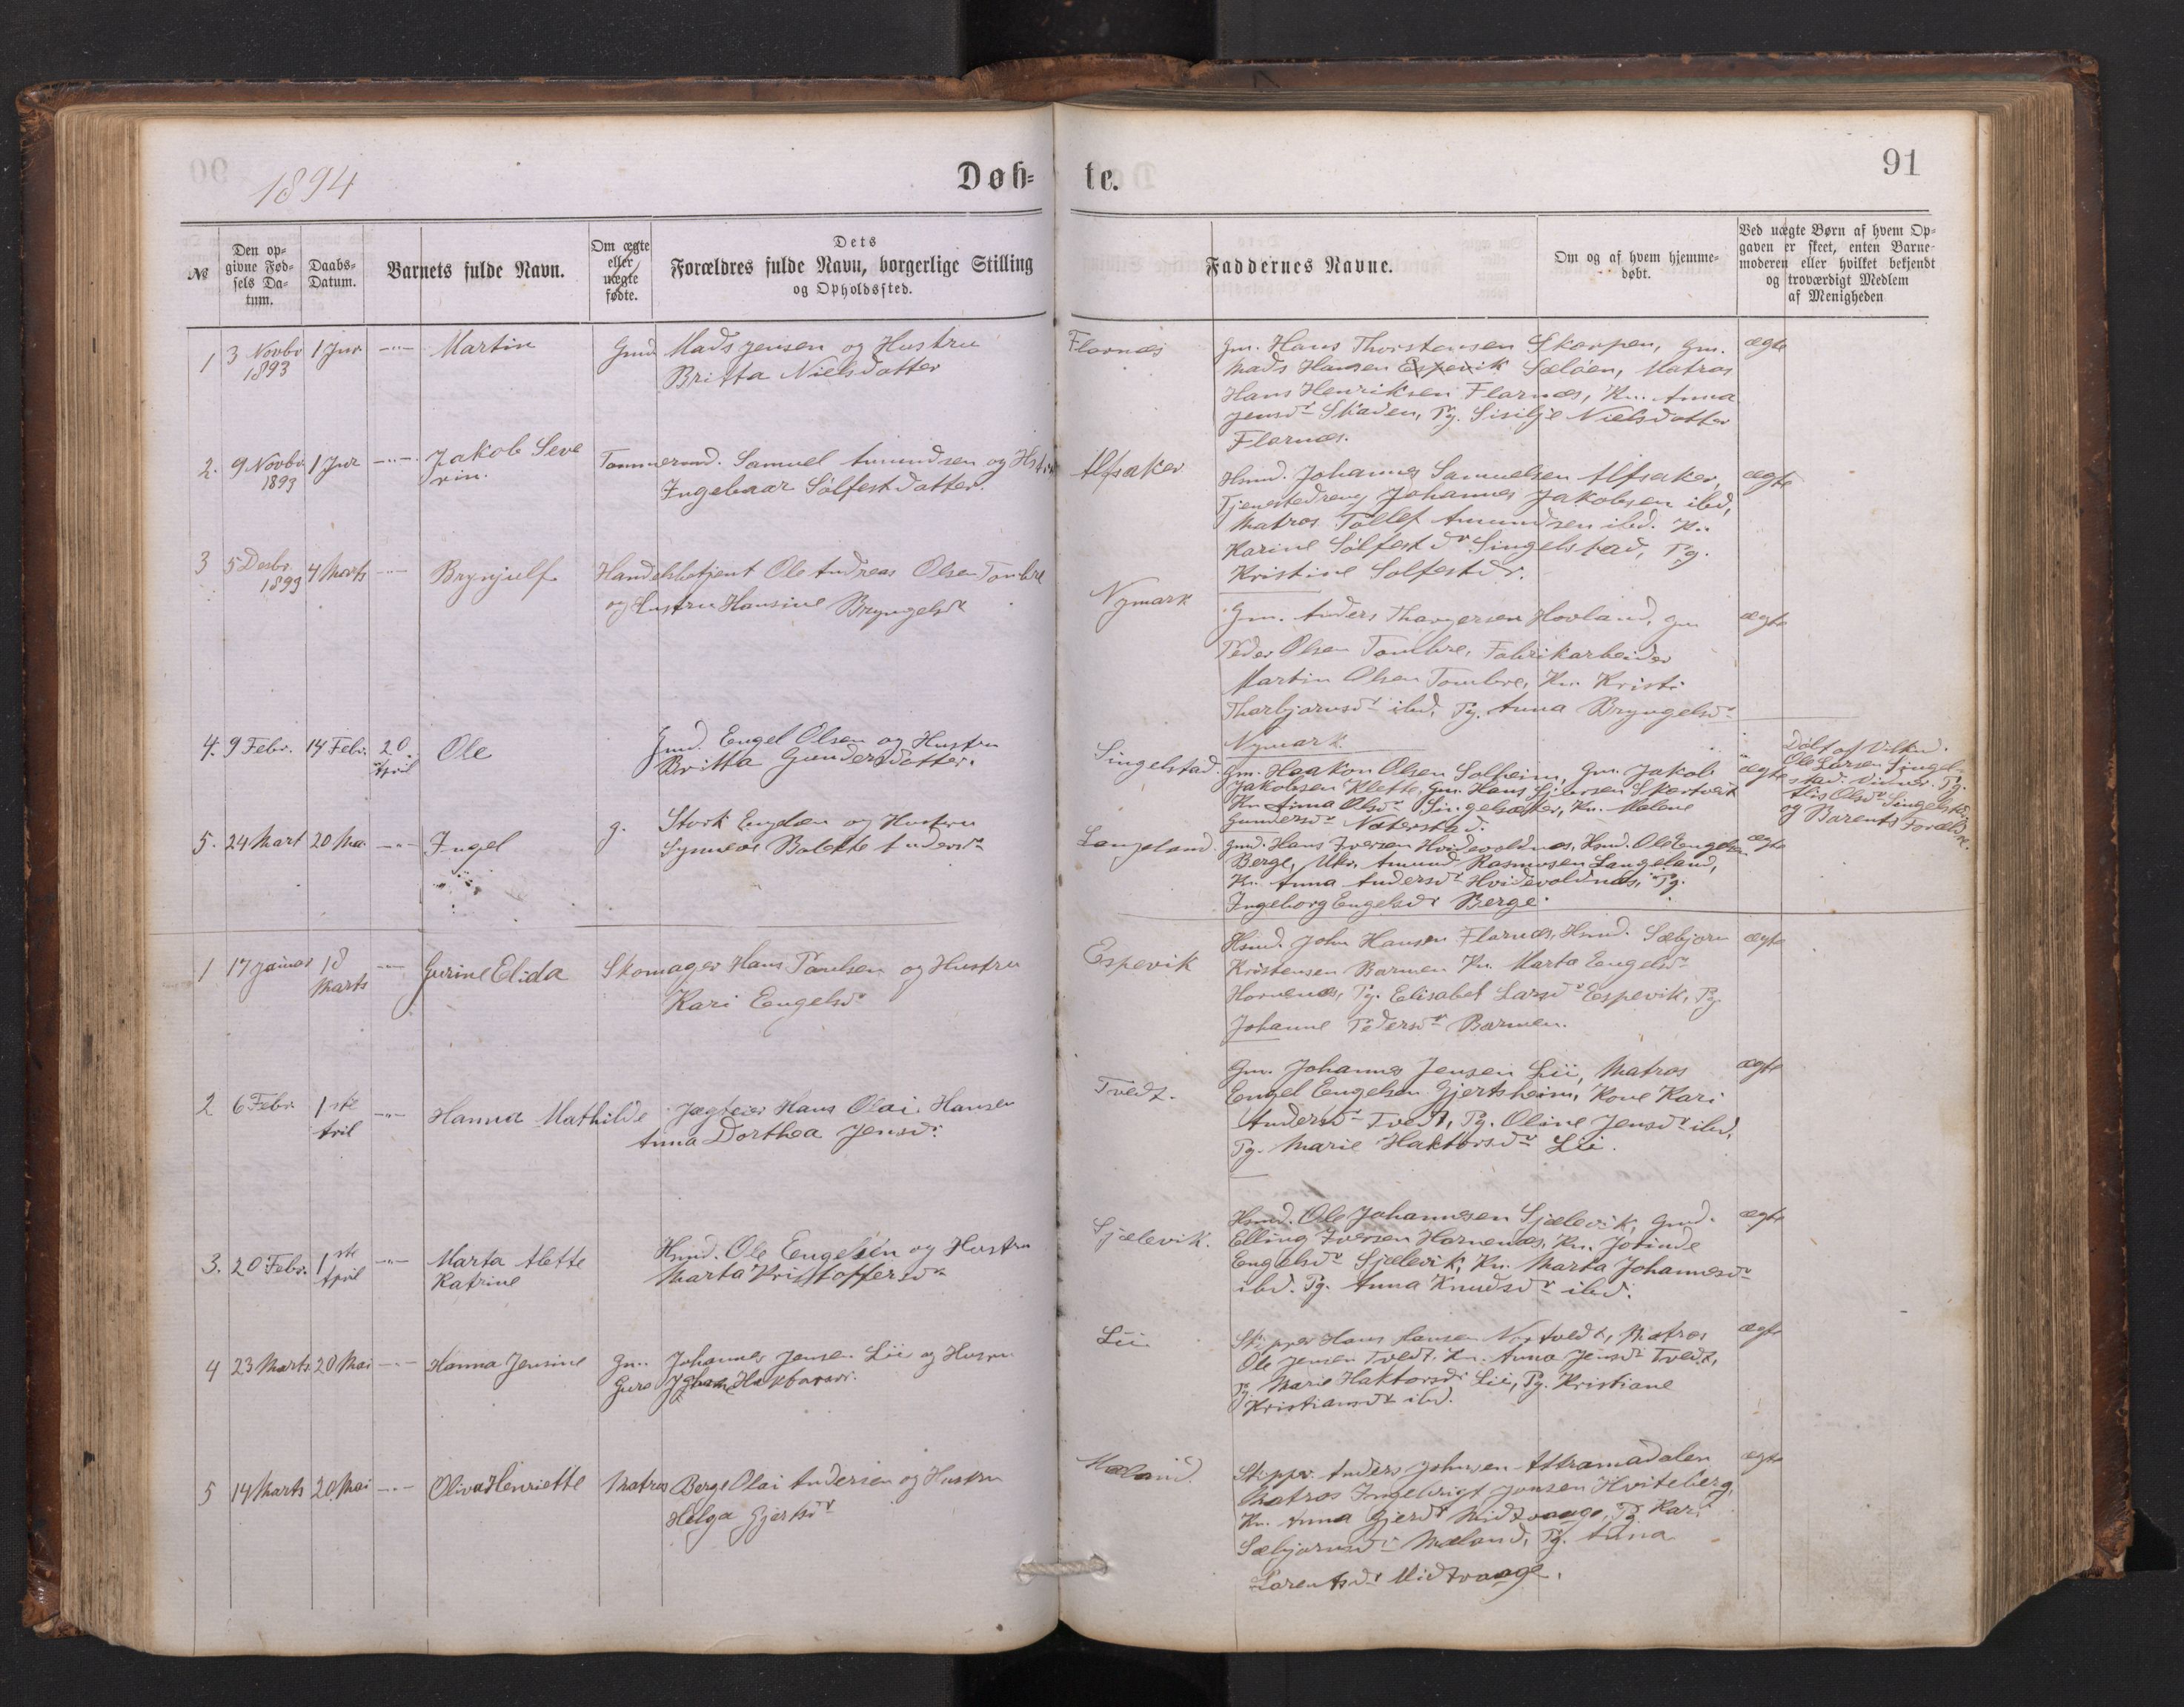 1894
Døb-
te.
91
№
Den op-
givne Fød-
sels Da-
tum.
Daabs-
Datum.
Barnets fulde Navn.
Om ægte
eller
uægte
fødte.
Dets
Forældres fulde Navn, borgerlige Stilling
og Opholdssted.
Faddernes Navne.
Om og af hvem hjemme-
døbt.
Ved uægte Børn af hvem Op-
gaven er skeet, enten Barne-
moderen eller hvilket bekjendt
og troværdigt Medlem
af Menigheden
1 3 Novbr 1 Jnr -"- Martin Gmd Mads Jensen og Hustru
1893 Britta Nielsdatter
Flornæs Gm. Hans Thorstensen Skorpen, Gm. ægte
Mads Hansen Espevik Sæløen, Matros
Hans Henriksen Flornæs, Kn. Anna
Jensdr Skaden, Pg. Sisilje Nielsdatter
Flornæs.
2. 9 Novbr 1 Jnr -"- Jakob Seve Tømmermd. Samuel Amundsen og Hstr
1893 rin. Ingeborg Sølfestdatter.
Alfsaker Hsmd. Johannes Samuelsen Alfsaker, ægte
Tjenestedreng Johannes Jakobsen ibd,
Matros Tollef Amundsen ibd. Kn.
Karine Sølfestdr Singelstad, Pg.
Kristine Solfestdr.
3 5 Desbr. 4 Marts -"- Brynjulf Handelsbetjent Ole Andreas Olsen Tombre
1893 og Hustru Hansine Bryngelsdr
Nymark Gm. Anders Thorgersen Hovland, Gm ægte
Peder Olsen Tombre, Fabrikarbeider
Martin Olsen Tombre, Kn. Kristi
Thorbjørnsdr ibd, Pg. Anna Bryngelsdr
Nymark.
4. 9 Febr. 14 Febr. 20 April Ole Gmd. Engel Olsen og Hustru
Britta Gundersdatter.
Singelstad. Gm. Haakon Olsen Solheim, Gm. Jakob ægte
Jakobsen Klette, Gm. Hans Sjursen Skartveit
Kn. Anna Olsdr Singelsæther, Kn. Malene
Gundersdr Naterstad.
Døbt af
Ole Larsen Singel-
stad. Vidner. Pg.
Alis Olsdr Singelstad
og Barents Forældre.
5. 24 Mart 20 Mai -"- Ingel g. Stork Engelsen og Hustru
Synneve Bolette Andersdr
Langeland. Gmd. Hans Iversen Hvidevoldnæs, Hsmd. Ole Engelsen ægte
Berge, Ukr. Amund Rasmusen Langeland,
Kn. Anna Andersdr Hvidevoldnæs, Pg.
Ingeborg Engelsdr Berge.
1 17 Januar 18 Marts -"- Gurine Elida Skomager Hans Paulsen og Hustru
Kari Engelsdr
Espevik Hsmd. John Hansen Flornæs, Hsmd. Sæbjørn ægte
Kristensen Barmen Kn. Marta Engelsdr
Hornenæs, Pg. Elisabet Larsdr Espevik, Pg.
Johanne Pedersdr Barmen.
2 6 Febr. 1ste Aril -"- Hanna Mathilde Jagteier Hans Olai Hansen
Anna Dorthea Jensdr.
Tvedt. Gm. Johannes Jensen Lii, Matros ægte
Engel Engelsen Gjertsheim, Kone Kari
Andersdr Tvedt, Pg. Oline Jensdr ibd,
Pg. Marie Haktorsdr Lii.
3. 20 Febr. 1ste April -"- Marta Alette Hsmd. Ole Engelsen og Hustru
Katrine Marta Kristoffersdr
Sjælevik. Hsmd. Ole Johannesen Sjælevik, Gmd. ægte
Elling Iversen Hornenæs, Kn. Jorinde
Engelsdr Sjælevik, Kn. Marta Johannesdr
ibd. Pg. Anna Knudsdr ibd.
4 23 Marts 20 Mai -"- Hanna Jensine Gm. Johannes Jensen Lii og Hustru
Gure
Lii Skipper Hans Hansen Nortvedt, Matros ægte
Ole Jensen Tvedt, Kn. Anna Jensdr Tvedt,
Pg. Marie Haktorsdr Lii, Pg. Kristiane
Kristiansdr ibd.
5 14 Marts 20 Mai -"- Oliva Henriette Matros Berge Olai Andersen og Hustru
Helga Gjertsdr
Mæland. Skippr. Anders Johnsen Attramadalen ægte
Matros Ingebrigt Jonsen Hviteberg,
Kn. Anna Gjerdr Midtvaage, Pg. Kari
Sæbjørnsdr Mæland, Pg. Anna
Larentsdr Midtvaage.